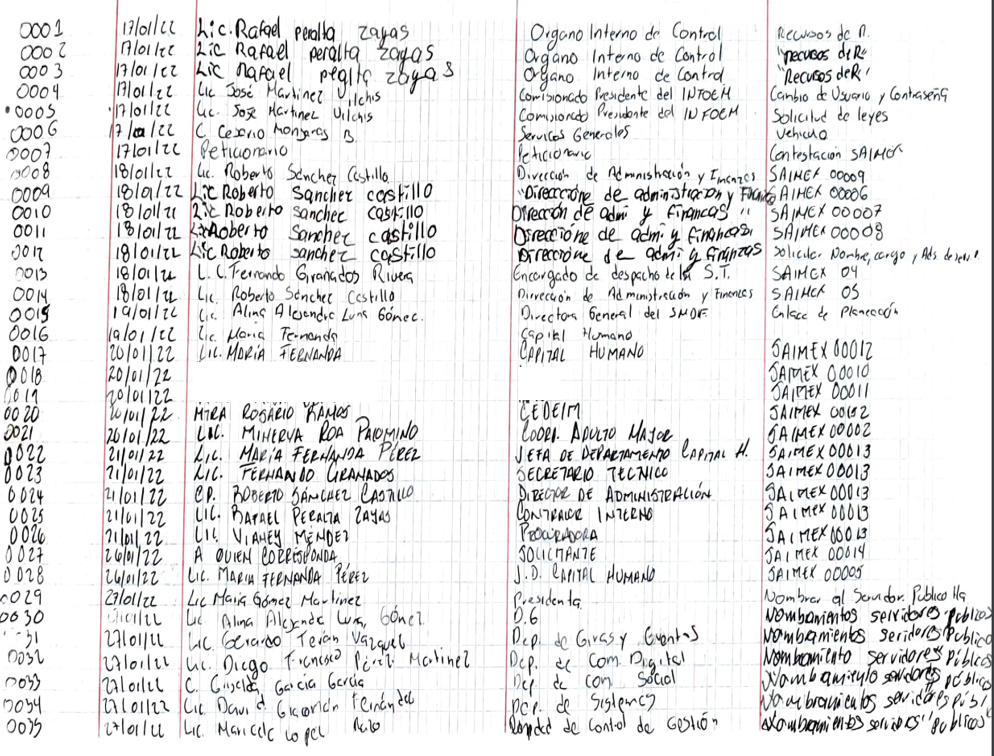 0001 17/01/22 Lic. Rafael peralta zayas Organo Interno de Control Recursos de R.
0002 17/01/22 Lic Rafael peralta zayas Organo Interno de Control "recursos de R"
0003 17/01/22 Lic Rafael pealta zayas Organo Interno de Control "Recursos de R"
0004 17/01/22 Lic José Martínez Vilchis Comisionado Presidente del INFOEM Cambio de Usuario y Contraseña
0005 17/01/22 Lic. José Martínez Vilchis Comisionado Presidente del INFOEM Solicitud de leyes
0006 17/01/22 C Cesario Monjaras B. Servicos Generales Vehículo
0007 17/01/22 Peticionario Peticionario Contestación SAIMEX
0008 18/01/22 Lic. Roberto Sánchez Castillo Dirección de Administración y Finanzas SAIMEX 00009
0009 18/01/22 Lic Roberto Sanchez castillo "Direccione de administracion y SAIMEX 00006
0010 18/01/22 Lic Roberto sanchez castillo Dirección de admi y financas " SAIMEX 00007
0011 18/01/22 Lic Roberto sanchez castillo Direccione de admi y financas SAIMEX 00008
0012 18/01/22 Lic Roberto sanchez castillo Direccione de admi y finanzas Solicitar Nombre, cargo y Ads
0013 18/01/22 L.C. Fernando Granados Rivera Encargado de despacho de la S.T. SAIMEX 04
0014 18/01/22 Lic. Roberto Sánchez Castillo Dirección de Administración y Finanzas SAIMEX 05
0015 19/01/22 Lic. Alina Alejandra Luna Gómez. Directora General del SMDIF Enlace de Planeación
0016 19/01/22 Lic. María Fernanda Capital Humano
0017 20/01/22 Lic. MARÍA FERNANDA CAPITAL HUMANO SAIMEX 00012
0018 20/01/22 SAIMEX 00010
0019 20/01/22 SAIMEX 00011
0020 20/01/22 MTRA ROSARIO RAMOS CEDEIM SAIMEX
0021 20/01/22 LIC. MINERVA ROA PALOMINO COORD. ADULTO MAYOR SAIMEX 00002
0022 21/01/22 LIC. MARÍA FERNANDA PÉREZ JEFA DE DEPARTAMENTO CAPITAL H. SAIMEX 00013
0023 21/01/22 LIC. FERNANDO GRANADOS SECRETARIO TECNICO SAIMEX 00013
0024 21/01/22 CP. ROBERTO SÁNCHEZ CASTILLO DIRECTOR DE ADMINISTRACIÓN SAIMEX 00013
0025 21/01/22 LIC. RAFAEL PERALTA ZAYAS CONTRALOR INTERNO SAIMEX 00013
0026 21/01/22 LIC. VIANEY MÉNDEZ PROCURADORA SAIMEX 00013
0027 26/01/22 A QUIEN CORRESPONDA SOLICITANTE SAIMEX 00014
0028 26/01/22 Lic. MARIA FERNANDA PÉREZ J.D. CAPITAL HUMANO SAIMEX 00005
0029 27/01/22 Lic María Gómez Martinez Presidenta Nombrar al Servidor Publico
0030 Lic Alina Alejandra Luna Gómez D.G Nombamientos servidores publicos
31 27/01/22 Lic. Gerardo Terán Vázquez Dep. de Giras y Eventos Nombramientos seridores Publico
0032 27/01/22 Lic. Diego Francisco Pérez Martinez Dep. de Com. Digital Nombamiento servidores Públicos
0033 27/01/22 C. Giselda García García Dep. de Com. Social Nombamiento servidores públicos
0034 27/01/22 Lic David Fernández Dep. de Sistemas Nombramientos servidores
0035 27/01/22 Lic. Maricela Lopez de Control de Gestión Nombamientos servidores publicos